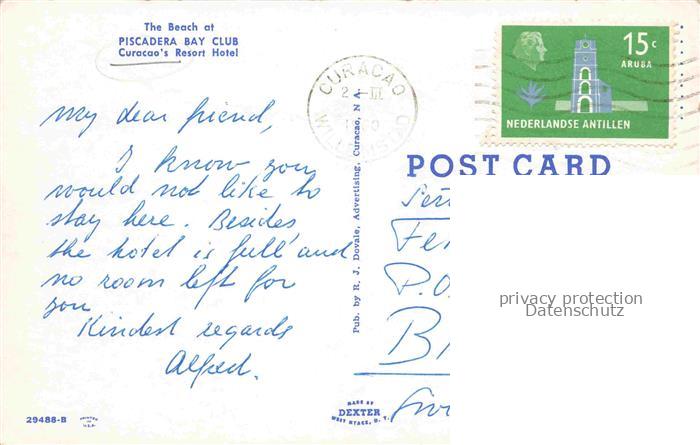 The Beach at
PISCADERA BAY CLUB
Curacao's Resort Hotel
My dear friend,
I know you
would not like to
stay here. Besides,
the hotel is full and
no room left for
you
Kindest regards
Alfred.
29488-B
PRINTED IN U.S.A.
Pub. by R. J. Dovale, Advertising, Curacao, N. A.
MADE BY
DEXTER
WEST NYACK, N. Y.
CURAÇAO
2 -III
WILLEMSTAD
15 c
ARUBA
NEDERLANDSE ANTILLEN
POST CARD
Fe
P.O
privacy protection
Datenschutz